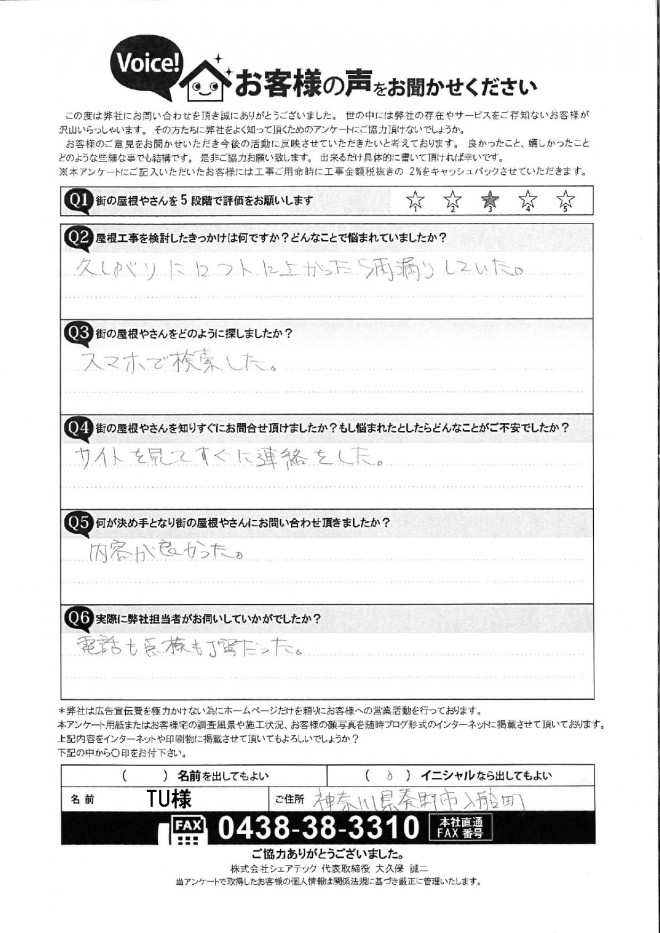 Voice!
お客様の声をお聞かせください
この度は弊社にお問い合わせを頂き誠にありがとうございました。 世の中には弊社の存在やサービスをご存知ないお客様が
沢山いらっしゃいます。 その方たちに弊社をよく知って頂くためのアンケートにご協力頂けないでしょうか。
お客様のご意見をお聞かせいただき今後の活動に反映させていただきたいと考えております。 良かったこと、嬉しかったこと
どのような些細な事でも結構です。 是非ご協力お願い致します。 出来るだけ具体的に書いて頂ければ幸いです。
※本アンケートにご記入いただいたお客様には工事ご用命時に工事金額税抜きの 2%をキャッシュバックさせていただきます。
Q1 街の屋根やさんを5段階で評価をお願いします
1 2 3 4 5
Q2 屋根工事を検討したきっかけは何ですか?どんなことで悩まれていましたか?
久しがりにロフトに上がったら雨漏りしていた。
Q3 街の屋根やさんをどのように探しましたか?
スマホで検索した。
Q4 街の屋根やさんを知りすぐにお問合せ頂けましたか?もし悩まれたとしたらどんなことがご不安でしたか?
サイトを見てすぐに連絡をした。
Q5 何が決め手となり街の屋根やさんにお問い合わせ頂きましたか?
内容が良かった。
Q6 実際に弊社担当者がお伺いしていかがでしたか?
電話も点検も丁寧だった。
*弊社は広告宣伝費を極力かけない為にホームページだけを頼りにお客様への営業活動を行っております。
本アンケート用紙またはお客様宅の調査風景や施工状況、お客様の顔写真を随時ブログ形式のインターネットに掲載させて頂いております。
上記内容をインターネットや印刷物に掲載させて頂いてもよろしいでしょうか?
下記の中から○印をお付下さい。
( ) 名前を出してもよい ( ○ ) イニシャルなら出してもよい
名前 TU様 ご住所 神奈川県秦野市入船町
FAX 0438-38-3310 本社直通 FAX番号
ご協力ありがとうございました。
株式会社シェアテック 代表取締役 大久保 誠二
当アンケートで取得したお客様の個人情報は関係法規に基づき厳正に管理いたします。